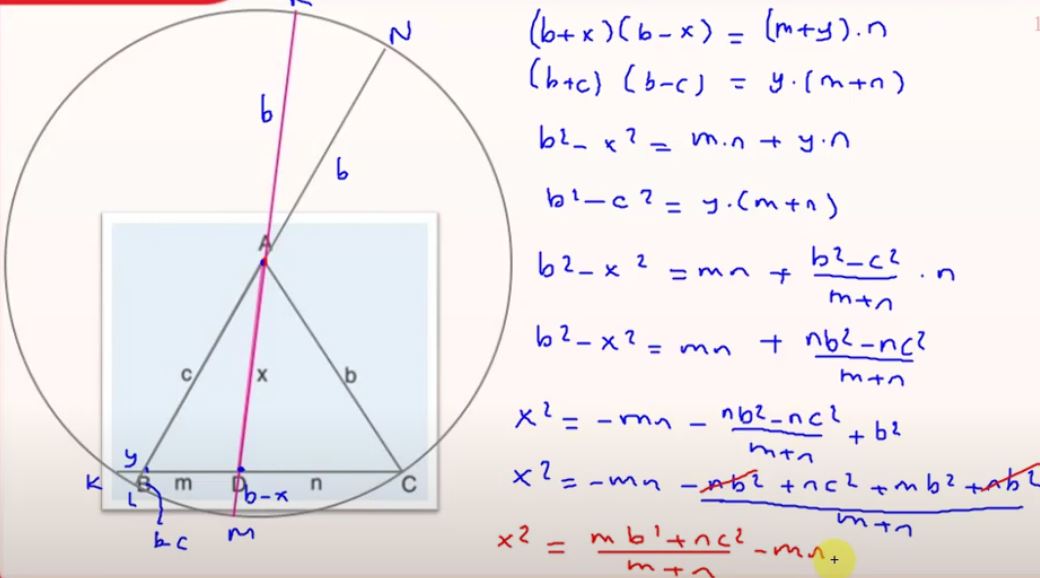 N
b
b
A
c
x
b
y
K
B
m
D
n
C
L
b-x
b-c
M
(b+x)(b-x) = (m+y).n
(b+c) (b-c) = y.(m+n)
b²- x² = m.n + y.n
b²-c² = y.(m+n)
b²-x² = mn + (b²-c²)/(m+n) . n
b²-x² = mn + (nb²-nc²)/(m+n)
x² = -mn - (nb²-nc²)/(m+n) + b²
x² = -mn (-nb² +nc² +mb² +nb²)/(m+n)
x² = (mb²+nc²)/(m+n) - mn